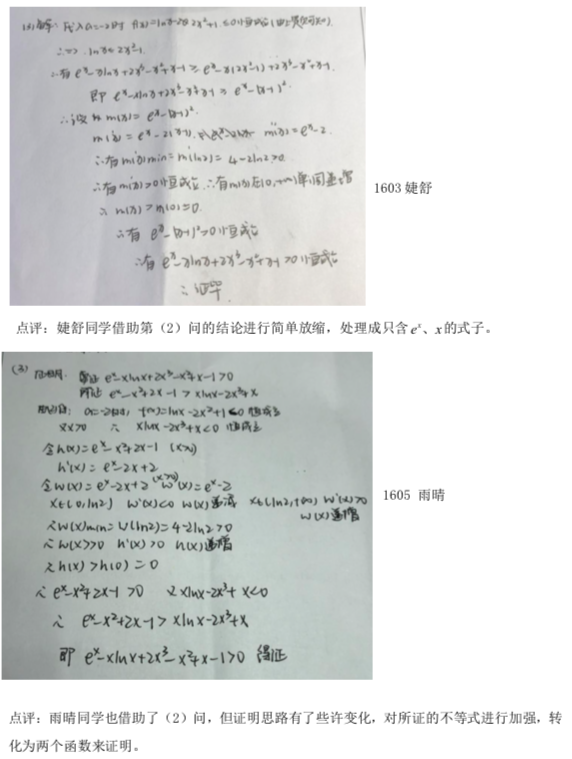 (3)解: 代入a=-2时 f(x)=lnx-2x²+1≤0恒成立
∴ lnx≤2x²-1
∴有 eˣ-xlnx+2x³-x²+x-1 ≥ eˣ-x(2x²-1)+2x³-x²+x-1
即 eˣ-xlnx+2x³-x²+x-1 ≥ eˣ-(x-1)²
∴设 m(x)= eˣ-(x-1)²
m'(x)= eˣ-2(x-1) m''(x)=eˣ-2
∴有m'(x)min=m'(ln2)= 4-2ln2>0
∴有m'(x)>0恒成立 ∴有m(x)在(0,+∞)单调递增
∴ m(x)>m(0)=0
∴有 eˣ-(x-1)²>0恒成立
∴有 eˣ-xlnx+2x³-x²+x-1>0恒成立
∴证毕
1603 婕舒
点评：婕舒同学借助第（2）问的结论进行简单放缩，处理成只含 eˣ、x 的式子。
(3) 证明: 要证 eˣ-xlnx+2x³-x²+x-1>0
即证 eˣ-x²+2x-1 > xlnx-2x³+x
a=-2时 f(x)=lnx-2x²+1≤0 恒成立
又x>0 ∴ xlnx-2x³+x≤0 恒成立
令h(x)=eˣ-x²+2x-1 (x>0)
h'(x)=eˣ-2x+2
令w(x)=eˣ-2x+2 (x>0) w'(x)=eˣ-2
x∈(0,ln2) w'(x)<0 w(x)递减 x∈(ln2,+∞) w'(x)>0
w(x)递增
∴w(x)min=w(ln2)=4-2ln2>0
∴w(x)>0 h'(x)>0 h(x)递增
∴h(x)>h(0)=0
∴ eˣ-x²+2x-1>0 又xlnx-2x³+x<0
∴ eˣ-x²+2x-1>xlnx-2x³+x
即 eˣ-xlnx+2x³-x²+x-1>0 得证
1605 雨晴
点评：雨晴同学也借助了（2）问，但证明思路有了些许变化，对所证的不等式进行加强，转
化为两个函数来证明。